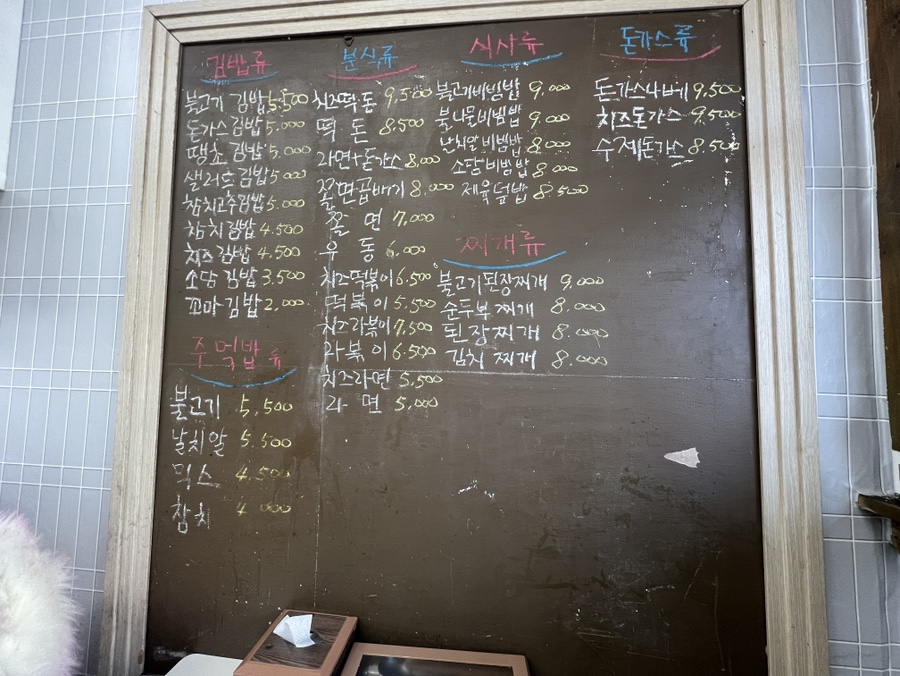 김밥류
불고기 김밥 5,500
돈가스김밥 5,000
땡초 김밥 5,000
샐러드김밥 5,000
참치고추김밥 5,000
참치김밥 4,500
치즈김밥 4,500
소담김밥 3,500
꼬마김밥 2,000
주먹밥류
불고기 5,500
날치알 5,500
믹스 4,500
참치 4,000
분식류
치즈떡돈 9,500
떡돈 8,500
라면+돈가스 8,000
쫄면곱배기 8,000
쫄면 7,000
우동 6,000
치즈떡볶이 6,500
떡볶이 5,500
치즈라볶이 7,500
라볶이 6,500
치즈라면 5,500
라면 5,000
식사류
불고기비빔밥 9,000
불나물비빔밥 9,000
날치알비빔밥 8,000
소담비빔밥 8,000
제육덮밥 8,500
찌개류
불고기된장찌개 9,000
순두부찌개 8,000
된장찌개 8,000
김치찌개 8,000
돈가스류
돈가스나베 9,500
치즈돈가스 9,500
수제돈가스 8,500